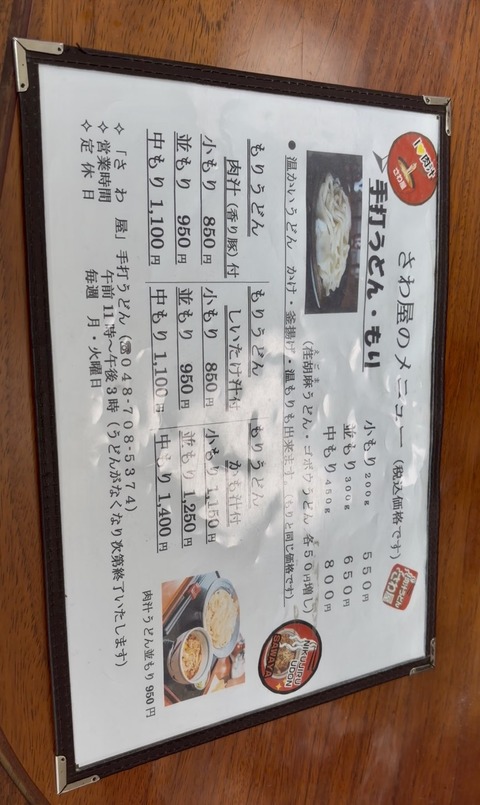 さわ屋のメニュー (税込価格です)
手打うどん・もり
小もり 200g 550円
並もり 300g 650円
中もり 450g 800円
(荏胡麻うどん・ゴボウうどん 各50円増し)
● 温かいうどん かけ・釜揚げ・温もりも出来ます。(もりと同じ価格です)
もりうどん
肉汁(香り豚)付
小もり 850円
並もり 950円
中もり 1,100円
もりうどん
しいたけ汁付
小もり 850円
並もり 950円
中もり 1,100円
もりうどん
かも汁付
小もり 1,150円
並もり 1,250円
中もり 1,400円
✧「さわ屋」手打うどん (☎048-708-5374)
✧営業時間 午前11時~午後3時 (うどんがなくなり次第終了いたします)
✧定休日 毎週 月・火曜日
肉汁うどん並もり 950円
NIKUJIRU
UDON
SAWAYA
肉汁
さわ屋